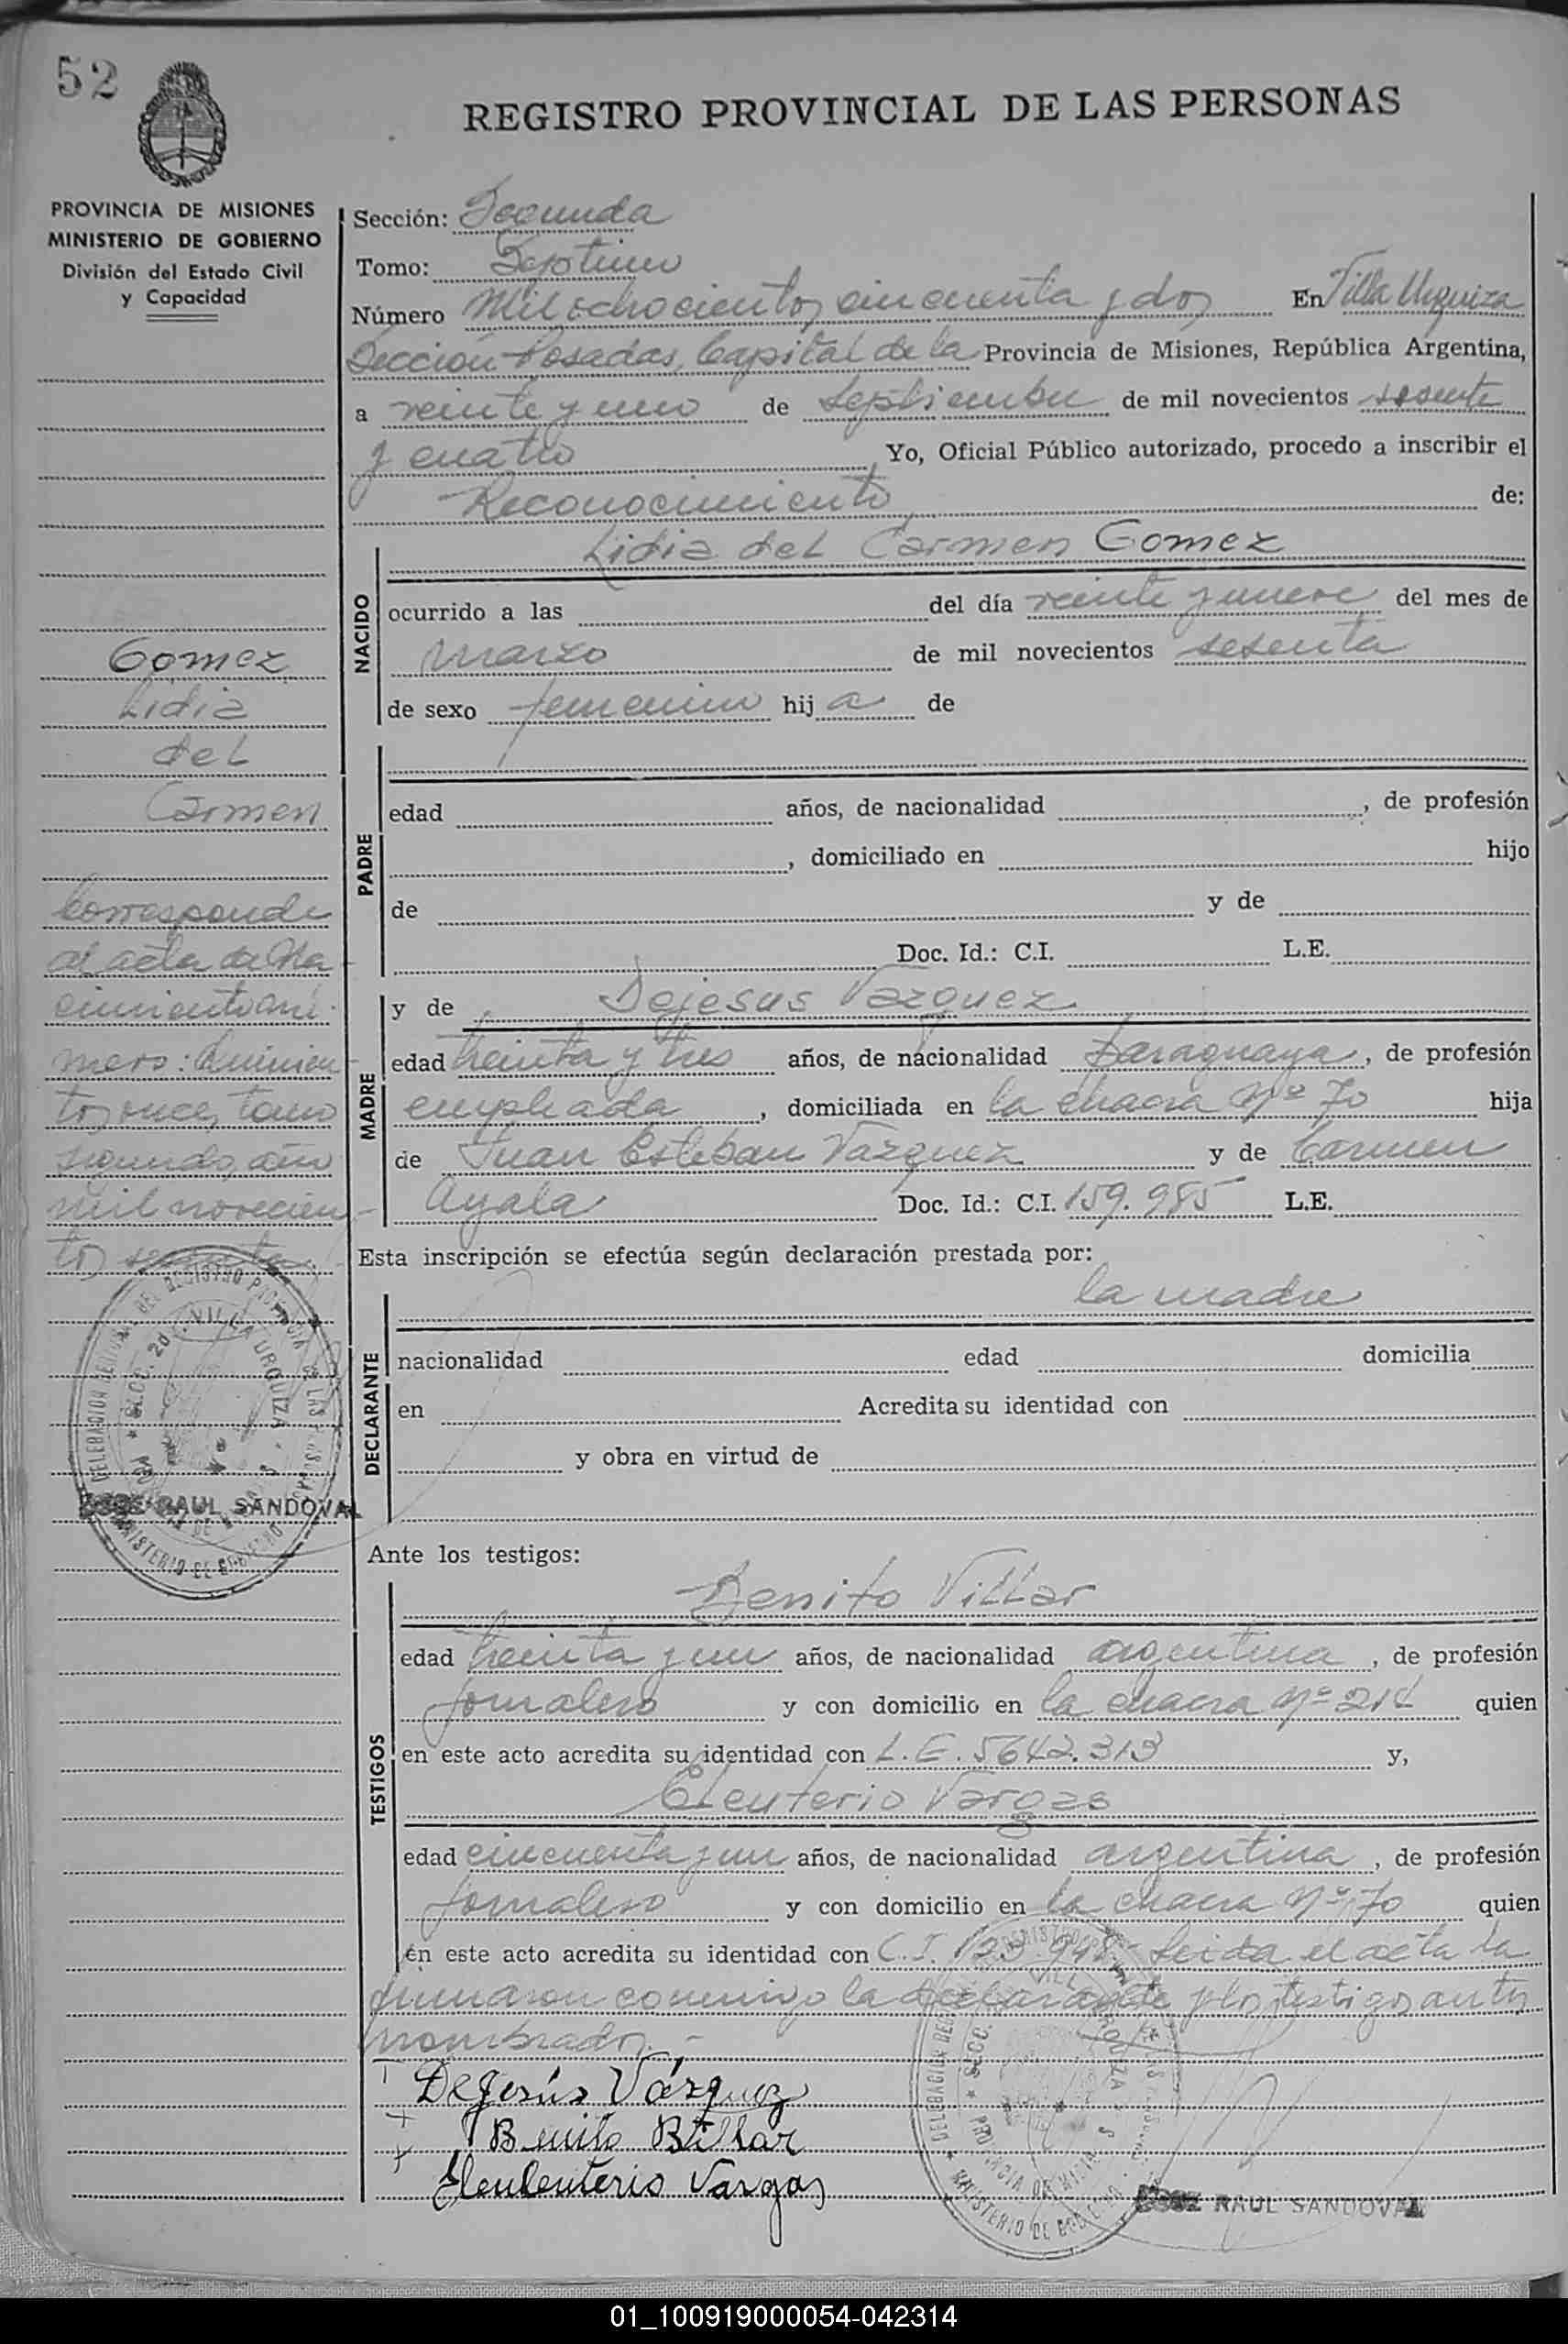 52
REGISTRO PROVINCIAL DE LAS PERSONAS
PROVINCIA DE MISIONES
MINISTERIO DE GOBIERNO
División del Estado Civil
y Capacidad
Gomez
Lidia
del
Carmen
Corresponde
al acta de Na
cimiento nú
mero: Quinien
tos once, tomo
segundo, año
mil novecien
tos sesenta.
JOSE RAUL SANDOVAL
Sección: Segunda
Tomo: Septimo
Número Mil ochocientos cincuenta y dos En Villa Urquiza
Sección Posadas, Capital de la Provincia de Misiones, República Argentina,
a veinte y uno de Septiembre de mil novecientos sesenta
y cuatro Yo, Oficial Público autorizado, procedo a inscribir el
Reconocimiento de:
NACIDO
Lidia del Carmen Gomez
ocurrido a las del día veinte y nueve del mes de
marzo de mil novecientos sesenta
de sexo femenino hij a de
PADRE
edad años, de nacionalidad , de profesión
, domiciliado en hijo
de y de
Doc. Id.: C.I. L.E.
MADRE
y de Dejesus Vazquez
edad treinta y tres años, de nacionalidad Paraguaya, de profesión
empleada, domiciliada en la chacra Nº 70 hija
de Juan Esteban Vazquez y de Carmen
Ayala Doc. Id.: C.I. 159.985 L.E.
Esta inscripción se efectúa según declaración prestada por:
DECLARANTE
la madre
nacionalidad edad domicilia
en Acredita su identidad con
y obra en virtud de
Ante los testigos:
TESTIGOS
Benito Villar
edad treinta y un años, de nacionalidad argentina, de profesión
jornalero y con domicilio en la chacra Nº 214 quien
en este acto acredita su identidad con L.E. 5642.313 y,
Eleuterio Vargas
edad cincuenta y un años, de nacionalidad argentina, de profesión
jornalero y con domicilio en la chacra Nº 70 quien
en este acto acredita su identidad con C.I. Leida el acta la
firmaron conmigo la declarante y los testigos antes
nombrados.-
DeJesús Vázquez
Benito Billar
Elenlenterio Vargas
DELEGACION REGISTRO PROVINCIAL DE LAS PERSONAS
SECC. 2d VILLA URQUIZA
PROVINCIA DE MISIONES
MINISTERIO DE GOBIERNO
JOSE RAUL SANDOVAL
01_100919000054-042314